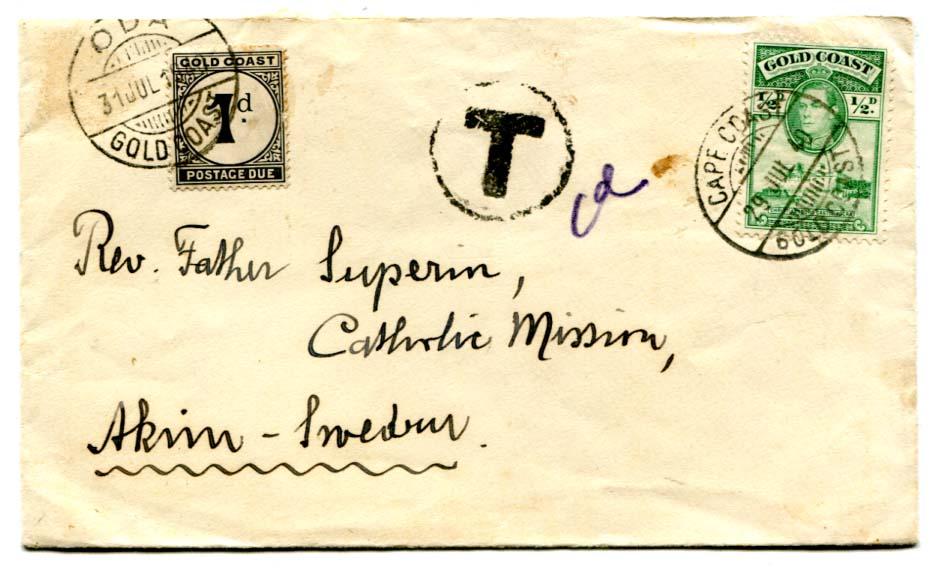 ODA
31 JUL
GOLD COAST
GOLD COAST
1d.
POSTAGE DUE
T
d
GOLD COAST
½D. ½D.
CAPE COAST
29 JUL
GOLD COAST
Rev. Father Superior,
Catholic Mission,
Akim - Swedru.